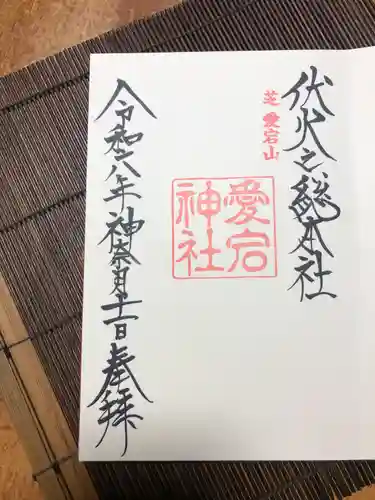 伏火之総本社
芝 愛宕山
愛宕
神社
令和六年神奈月十一日奉拝